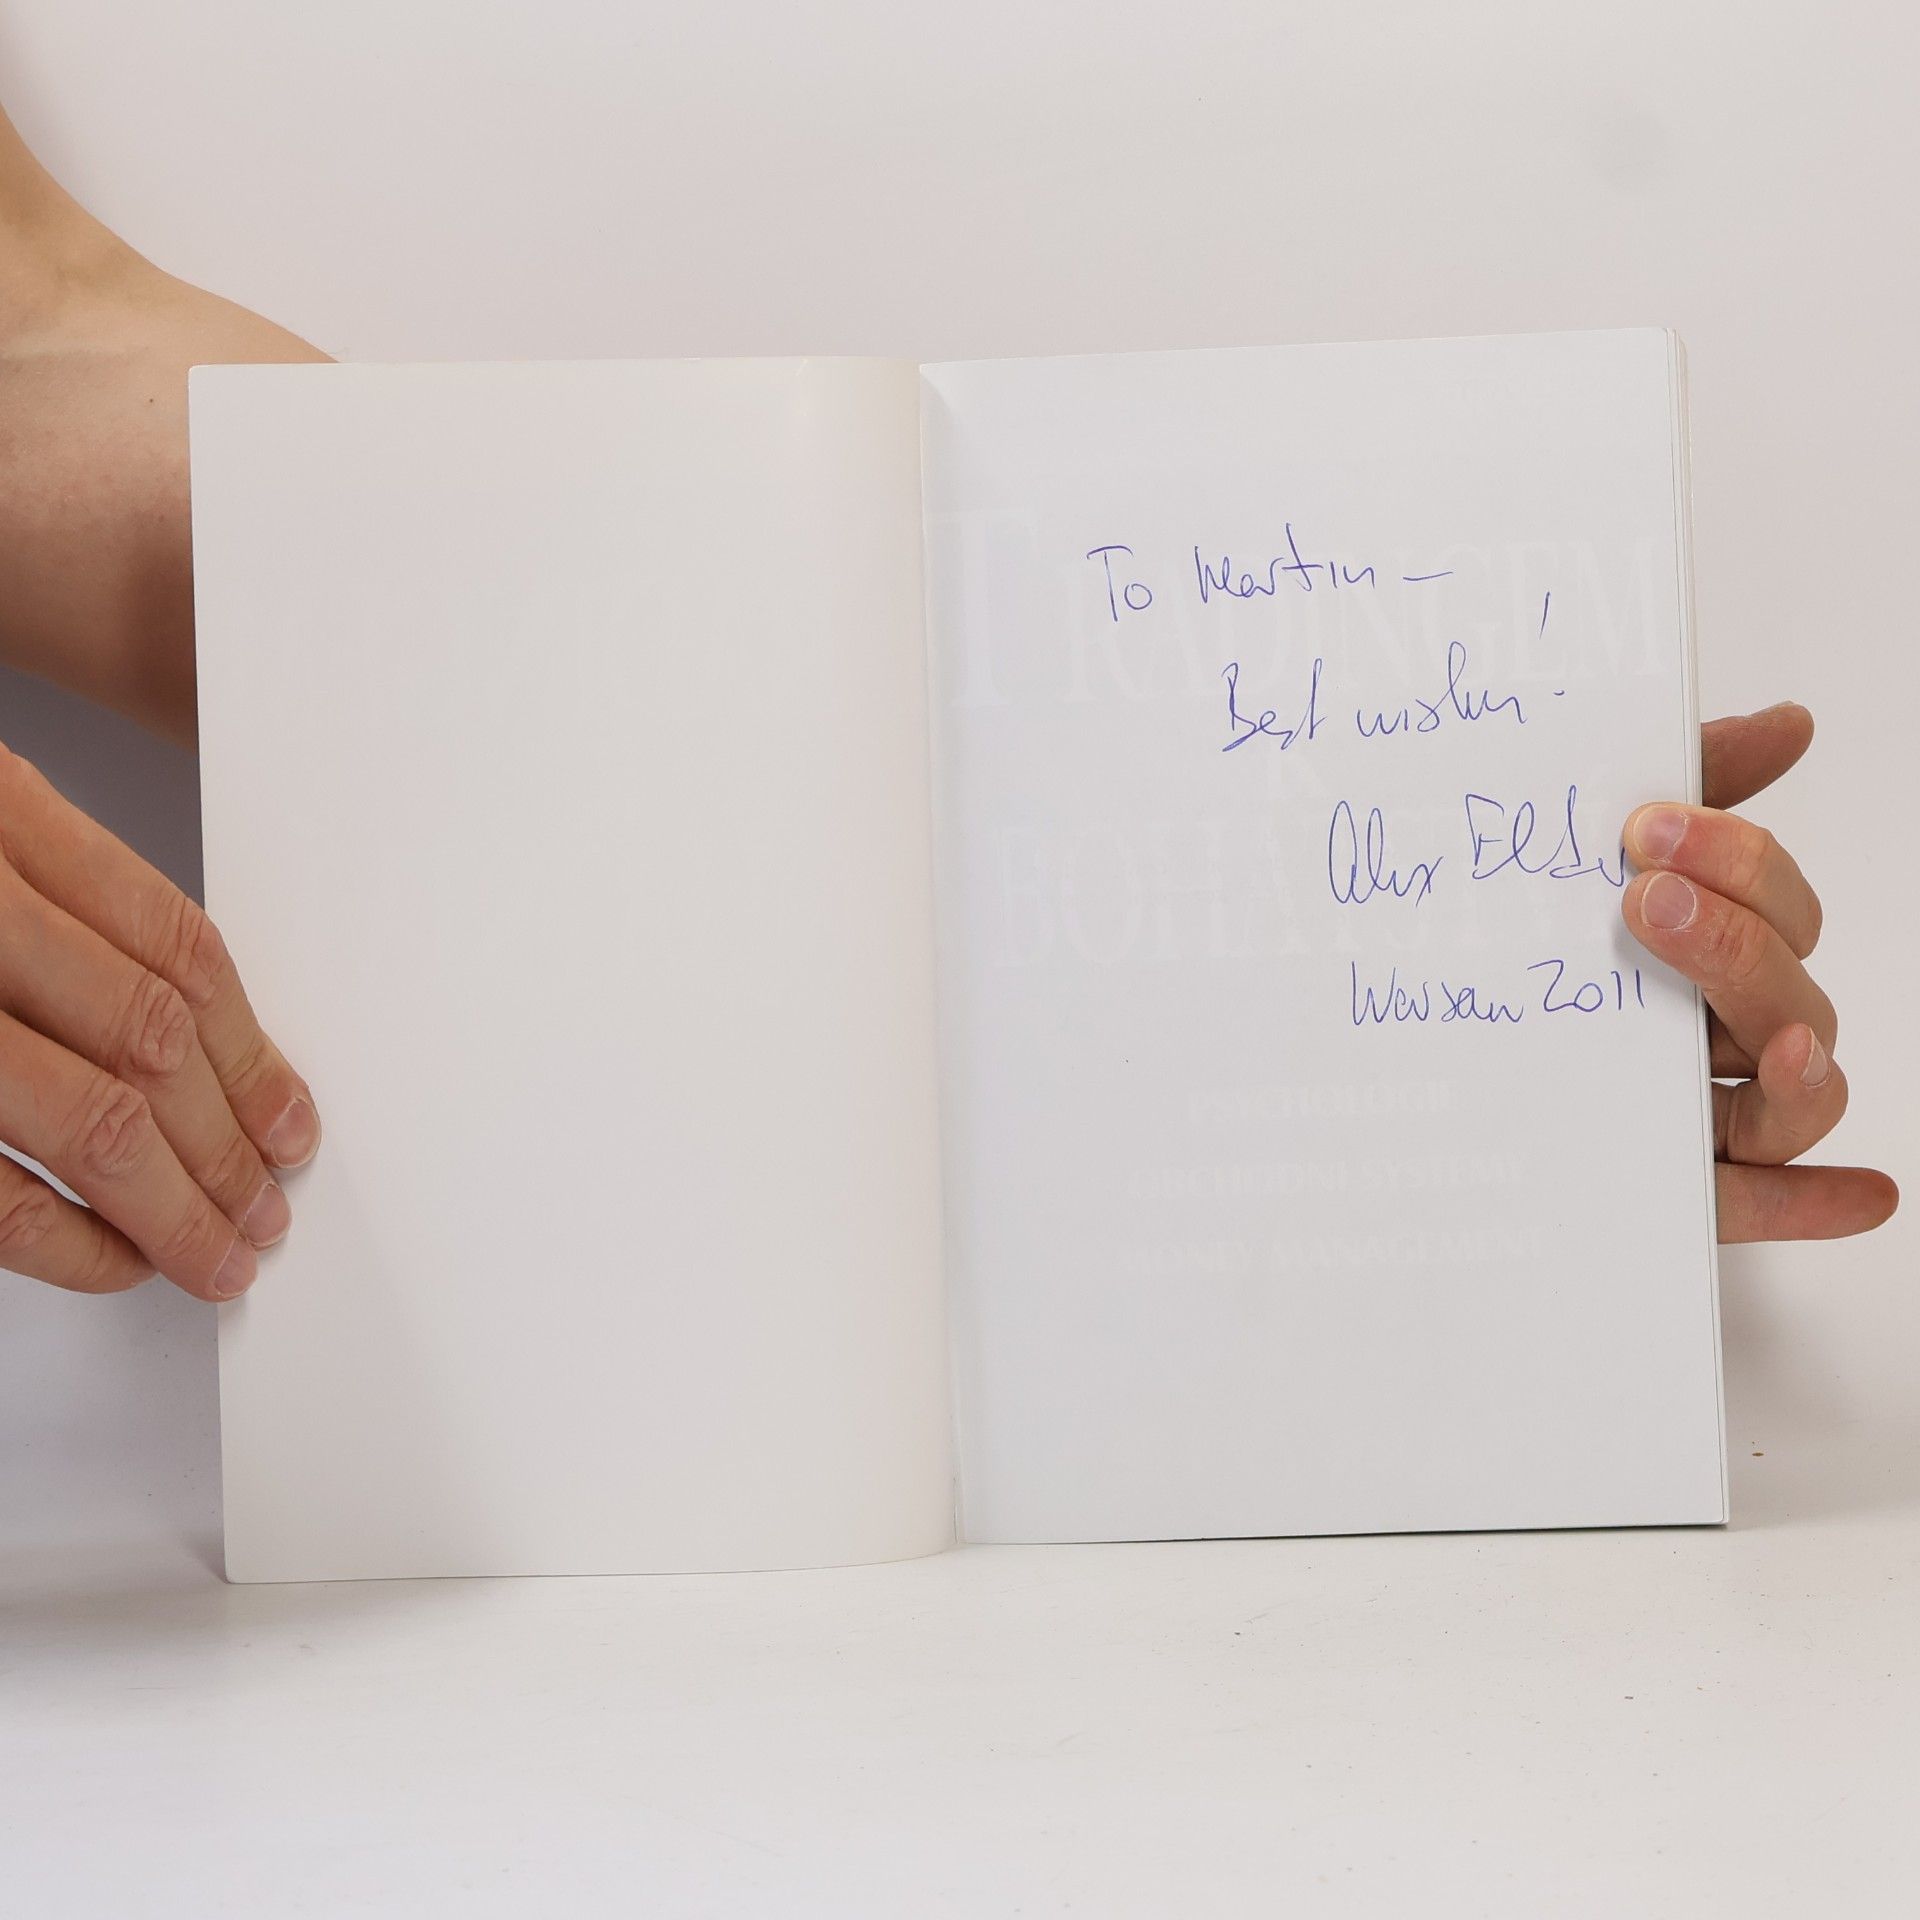 To Martin —
Best wishes!
Alex Elder
Warsaw 2011
TRADINGEM
K
BOHATSTVÍ
PSYCHOLOGIE
OBCHODNÍ SYSTÉMY
MONEY MANAGEMENT